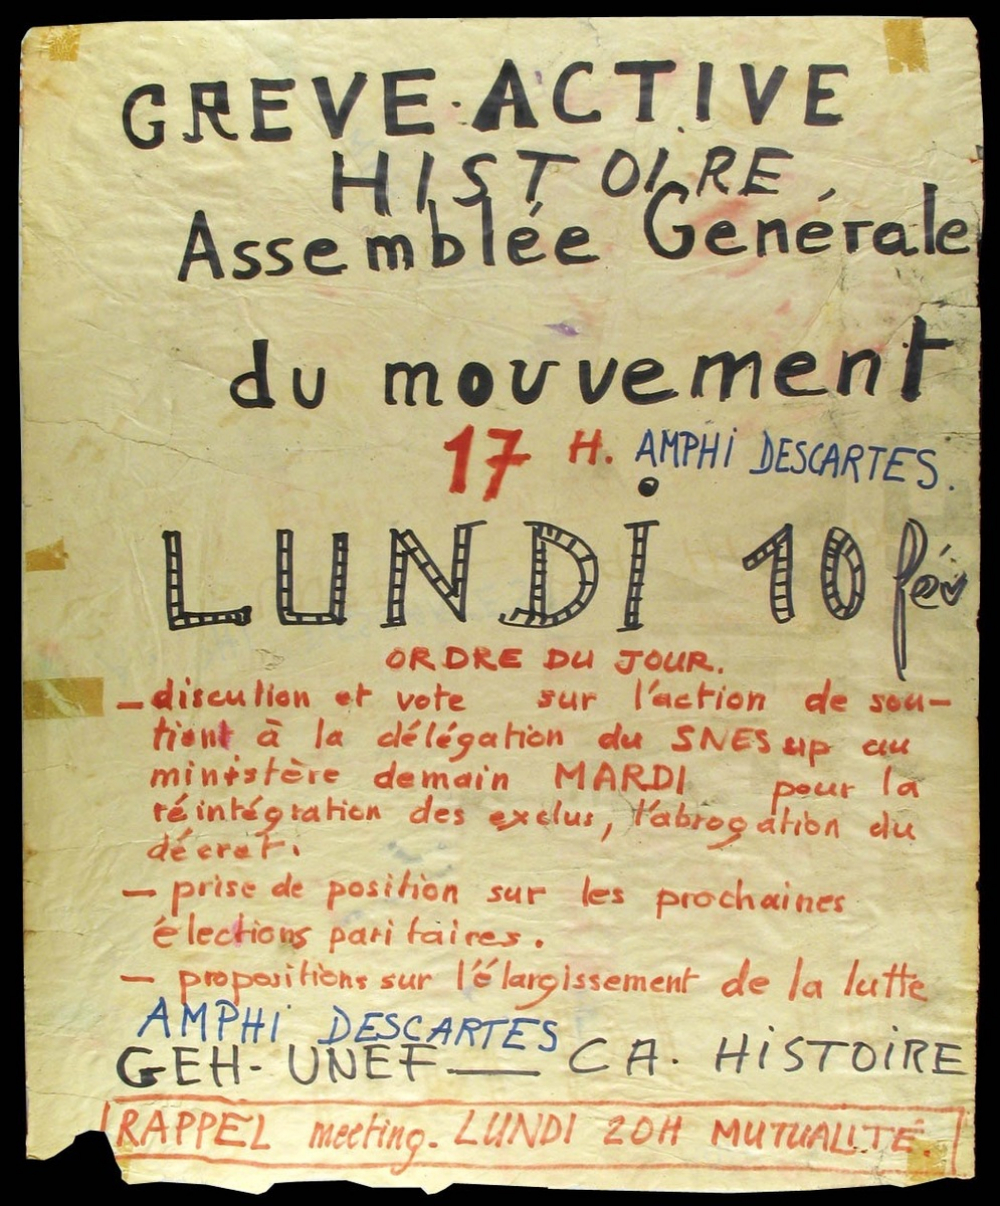 GREVE.ACTIVE
HISTOIRE
Assemblée Générale
du mouvement
17 H. AMPHI DESCARTES.
LUNDI 10 fév
ORDRE DU JOUR.
— discution et vote sur l'action de sou-
tient à la délégation du SNESsup au
ministère demain MARDI pour la
réintégration des exclus, l'abrogation du
décret.
— prise de position sur les prochaines
élections paritaires.
— propositions sur l'élargissement de la lutte
AMPHI DESCARTES
GEH-UNEF — CA. HISTOIRE
RAPPEL meeting. LUNDI 20H MUTUALITÉ.